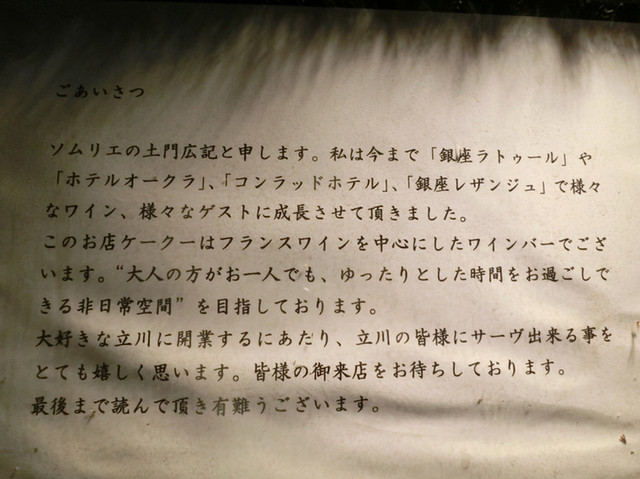 ごあいさつ
ソムリエの土門広記と申します。私は今まで「銀座ラトゥール」や
「ホテルオークラ」、「コンラッドホテル」、「銀座レザンジュ」で様々
なワイン、様々なゲストに成長させて頂きました。
このお店ケークーはフランスワインを中心にしたワインバーでござ
います。“大人の方がお一人でも、ゆったりとした時間をお過ごしで
きる非日常空間”を目指しております。
大好きな立川に開業するにあたり、立川の皆様にサーヴ出来る事を
とても嬉しく思います。皆様の御来店をお待ちしております。
最後まで読んで頂き有難うございます。